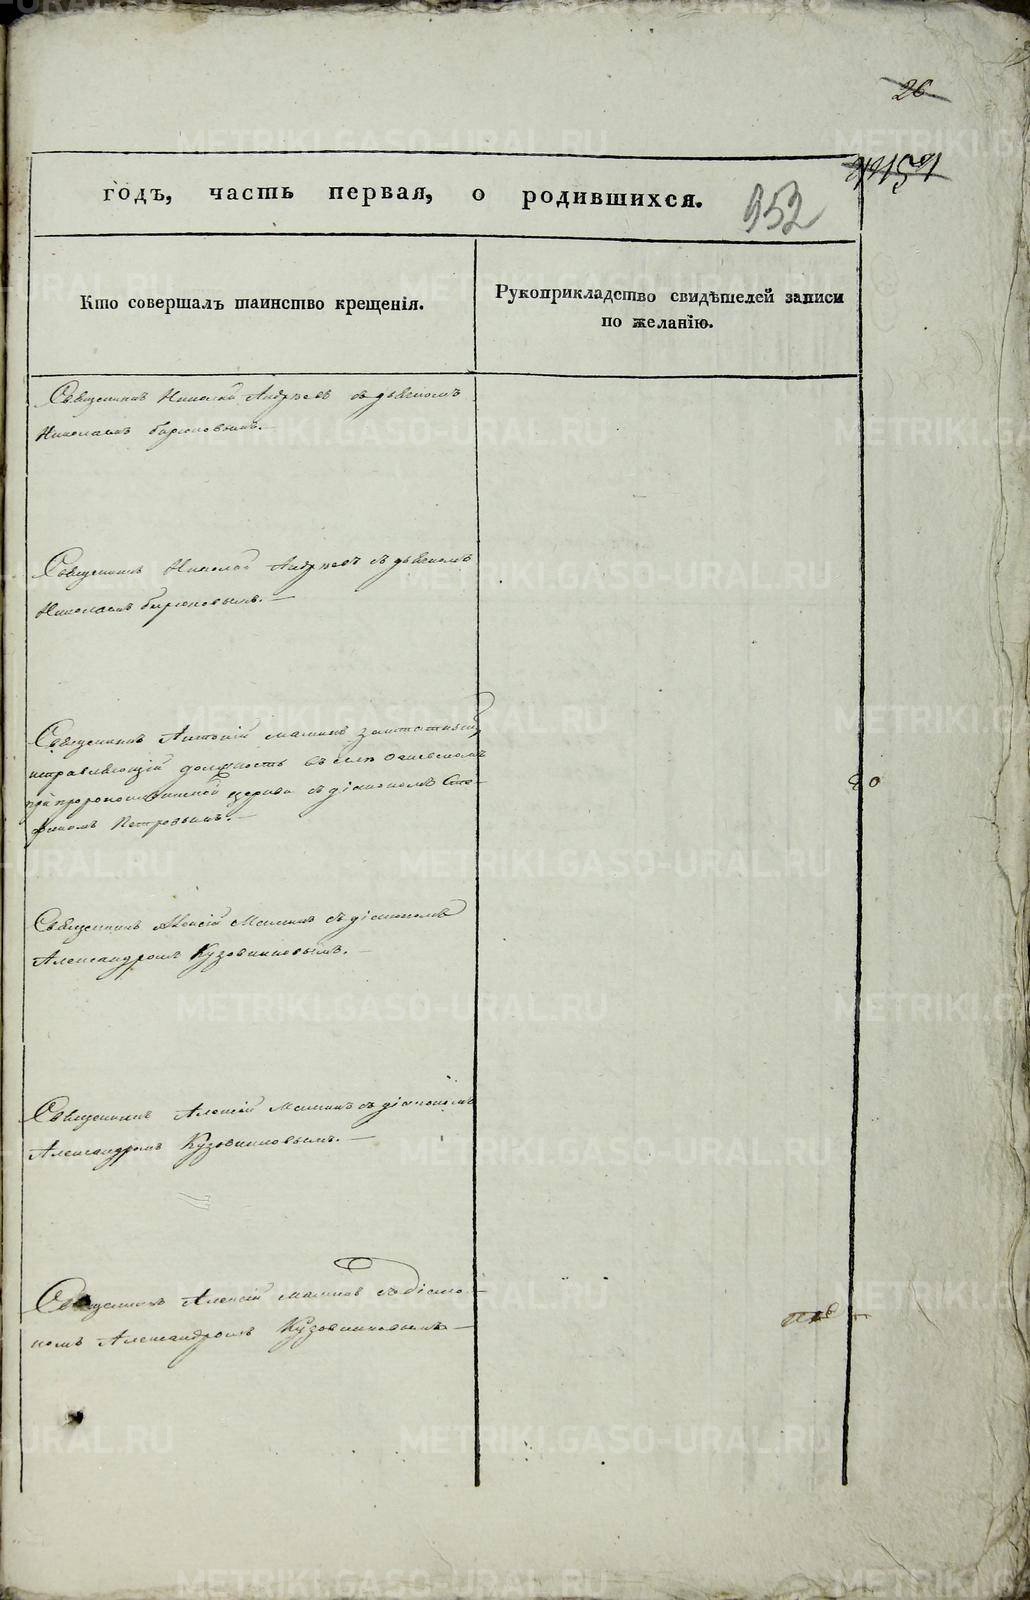 26
годъ, часть первая, о родившихся.
952
Кто совершалъ таинство крещенія.
Рукоприкладство свидѣтелей записи
по желанію.
Священникъ Николай Андреевъ съ дьякономъ
Николаемъ Бирюковымъ.
Священникъ Николай Андреевъ съ дьякономъ
Николаемъ Бирюковымъ.
Священникъ Антоній Маминъ заштатный,
исправляющій должность въ селѣ
при церкви съ діакономъ Сте-
фаномъ Петровымъ.
Священникъ Алексій Маминъ съ діакономъ
Александромъ Кузовниковымъ.
Священникъ Алексій Маминъ съ діакономъ
Александромъ Кузовниковымъ.
Священникъ Алексій Маминъ съ діако-
номъ Александромъ Кузовниковымъ
METRIKI.GASO-URAL.RU